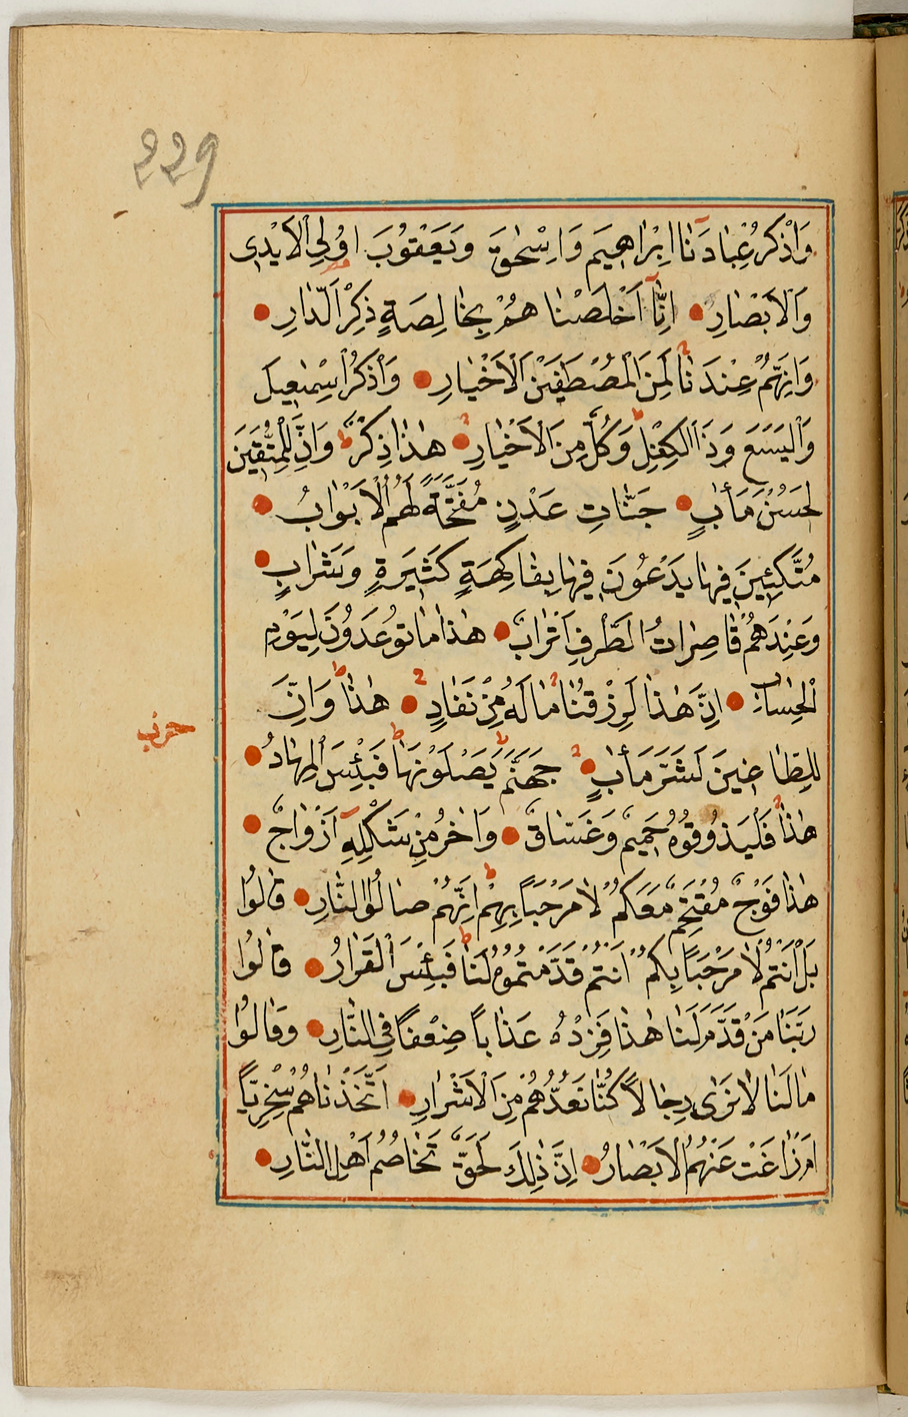 229
وَاذْكُرْ عِبَادَنَا اِبْرٰاهِيمَ وَاِسْحٰقَ وَيَعْقُوْبَ اُولِى الْاَيْدِى
وَالْاَبْصَارِ اِنَّآ اَخْلَصْنَا هُمْ بِخَالِصَةٍ ذِكْرَ الدَّارِ
وَاِنَّهُمْ عِنْدَنَا لَمِنَ الْمُصْطَفَيْنَ الْاَخْيَارِ وَاذْكُرْ اِسْمٰعِيلَ
وَالْيَسَعَ وَذَا الْكِفْلِ وَكُلٌّ مِنَ الْاَخْيَارِ هٰذَا ذِكْرٌ وَاِنَّ لِلْمُتَّقِينَ
لَحُسْنَ مَاٰبٍ جَنَّاتِ عَدْنٍ مُفَتَّحَةً لَهُمُ الْاَبْوَابُ
مُتَّكِئِينَ فِيهَا يَدْعُونَ فِيهَا بِفَاكِهَةٍ كَثِيرَةٍ وَشَرَابٍ
وَعِنْدَهُمْ قَاصِرَاتُ الطَّرْفِ اَتْرَابٌ هٰذَا مَا تُوعَدُونَ لِيَوْمِ
الْحِسَابِ اِنَّ هٰذَا لَرِزْقُنَا مَا لَهُ مِنْ نَفَادٍ هٰذَا وَاِنَّ
حزب
لِلطَّاغِينَ لَشَرَّ مَاٰبٍ جَهَنَّمَ يَصْلَوْنَهَا فَبِئْسَ الْمِهَادُ
هٰذَا فَلْيَذُوقُوهُ حَمِيمٌ وَغَسَّاقٌ وَاٰخَرُ مِنْ شَكْلِهِ اَزْوَاجٌ
هٰذَا فَوْجٌ مُقْتَحِمٌ مَعَكُمْ لَا مَرْحَبًا بِهِمْ اِنَّهُمْ صَالُوا النَّارِ قَالُوا
بَلْ اَنْتُمْ لَا مَرْحَبًا بِكُمْ اَنْتُمْ قَدَّمْتُمُوهُ لَنَا فَبِئْسَ الْقَرَارُ قَالُوا
رَبَّنَا مَنْ قَدَّمَ لَنَا هٰذَا فَزِدْهُ عَذَابًا ضِعْفًا فِى النَّارِ وَقَالُوا
مَا لَنَا لَا نَرٰى رِجَالًا كُنَّا نَعُدُّهُمْ مِنَ الْاَشْرَارِ اَتَّخَذْنَاهُمْ سِخْرِيًّا
اَمْ زَاغَتْ عَنْهُمُ الْاَبْصَارُ اِنَّ ذٰلِكَ لَحَقٌّ تَخَاصُمُ اَهْلِ النَّارِ